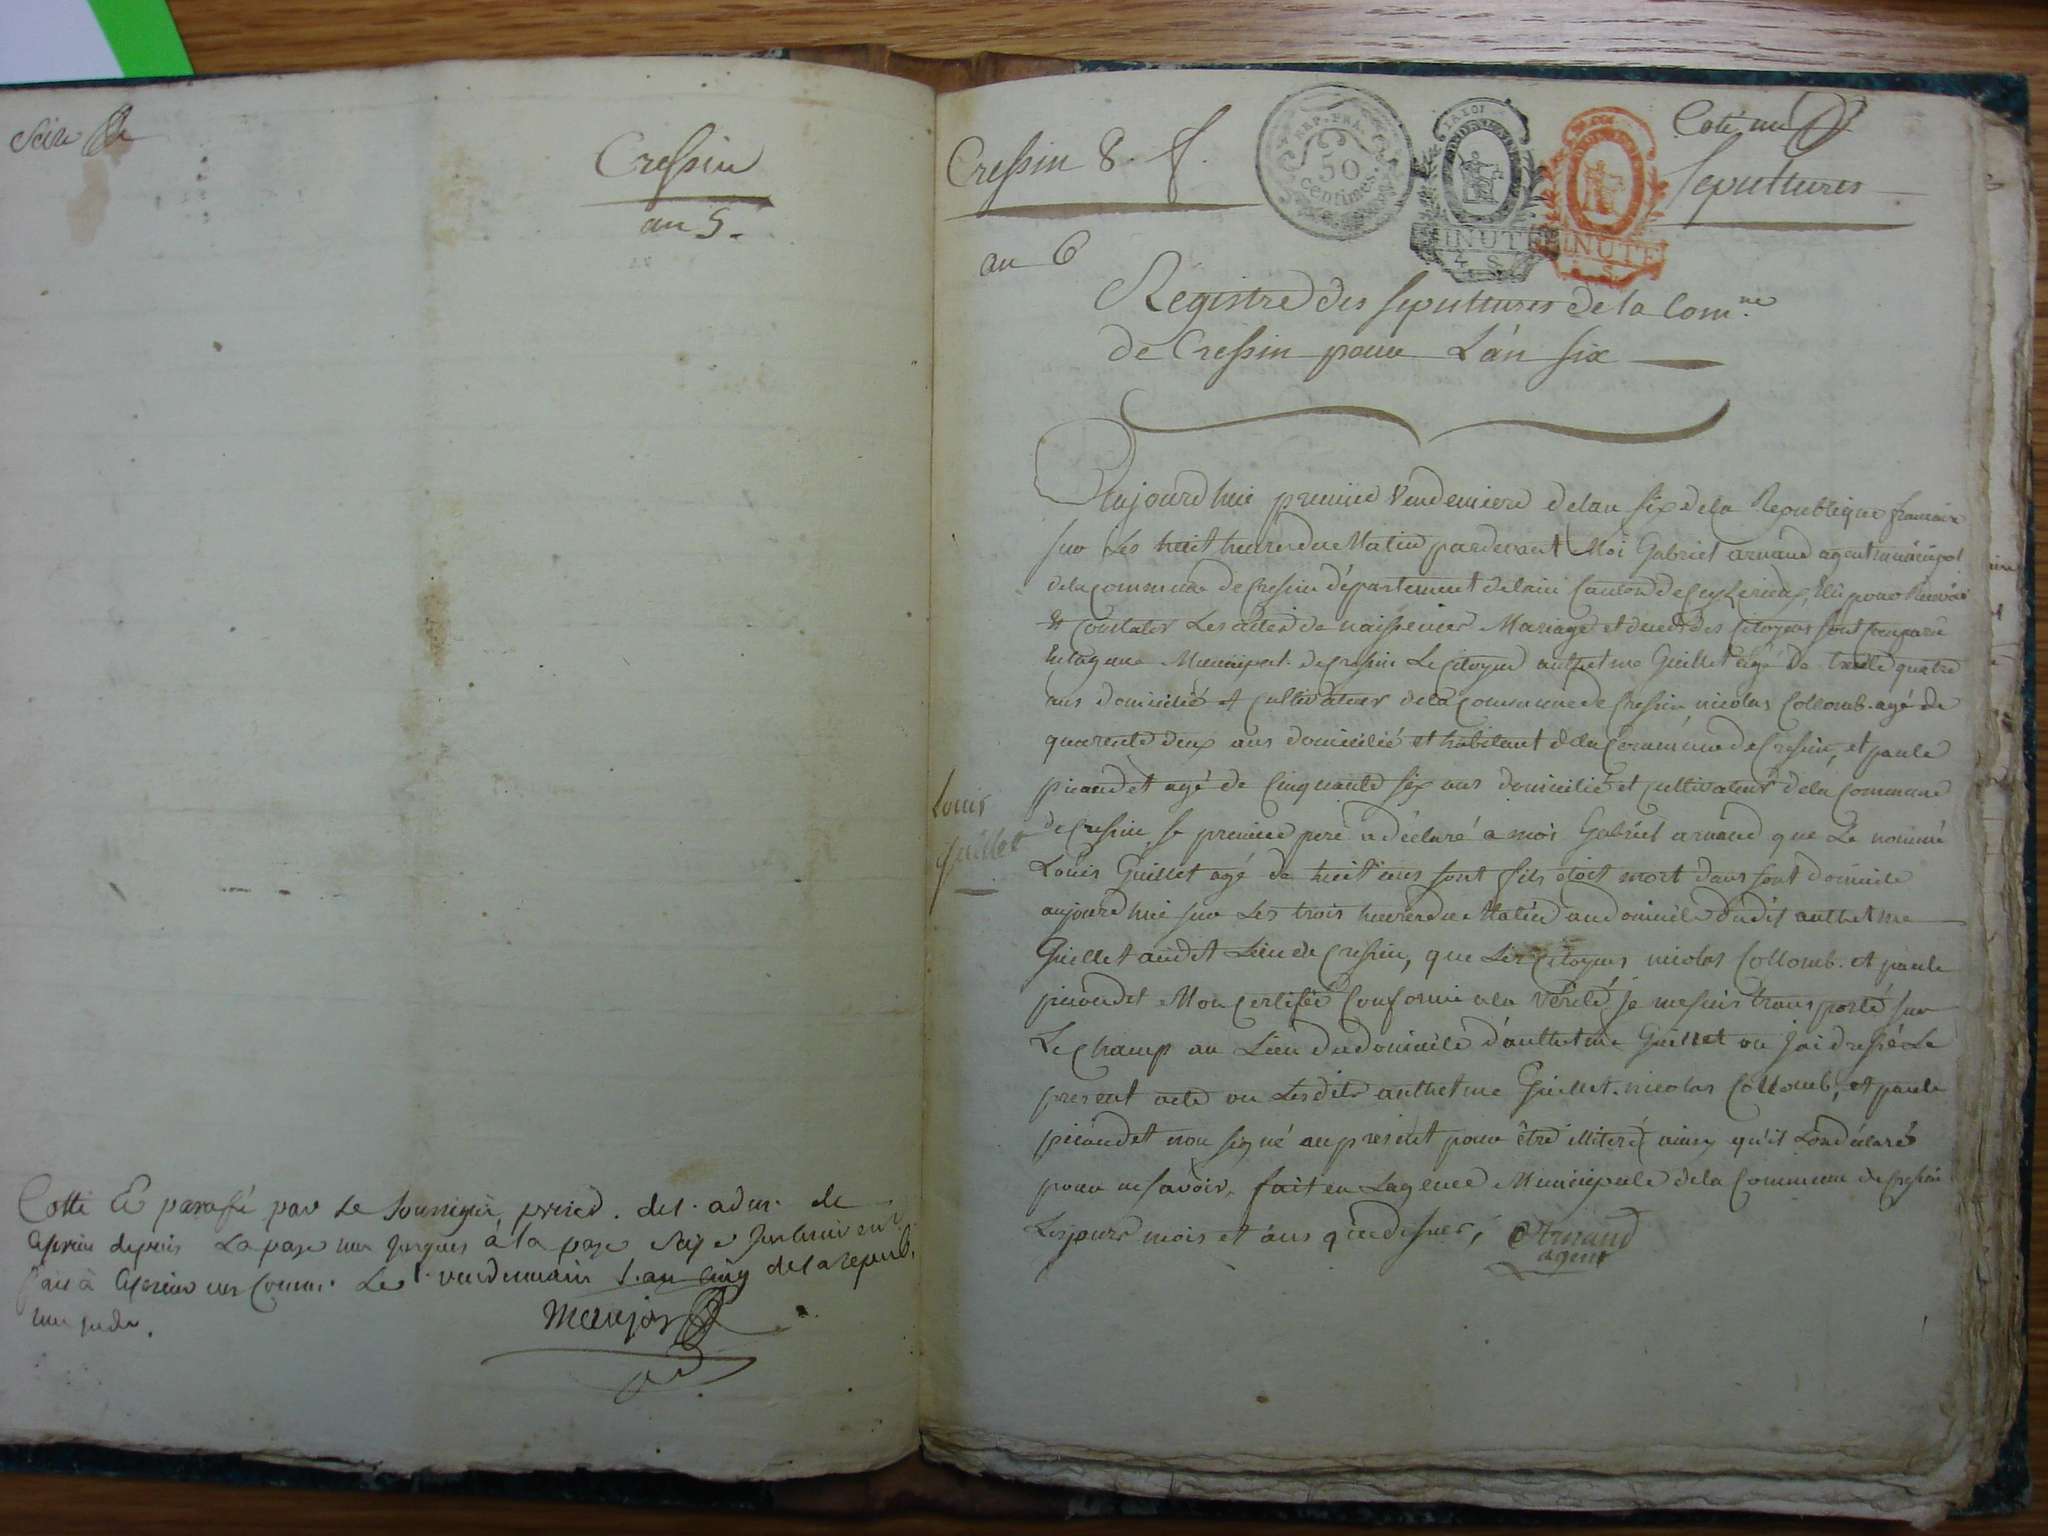 Seize
Cressin
an 5.
Cotté Et paraffé par Le Soussigné, presid. de l. adm. de
depuis La page une jusques à la page Seize
fait à en Comm. Le 1. vendemiaire l. an cinq de la repub.
une indiv.
Cressin 8. S.
REP. FRA.
50
centimes.
LA LOI
MINUTE
4 S
LA LOI
MINUTE
S
Coté un
Sepultures
an 6
Registre des sepultures de la Com.ne
de Cressin pour L'an six
Aujourd'hui premier Vendemiere de lan six de la Republique francaise
sur Les huit heures du Matin pardevant Moi Gabriel arnaud agent municipal
de la Commune de Cressin département de lain Canton de Ceyzerieux, Elû pour Recevoir
Et Constater Les actes de naissences Mariage et deces des Citoyens sont Comparu
En lagence Municipal. de Cressin Le Citoyen anthelme Guillet agé de trente quatre
ans domicilié et Cultivateur de la Commune de Cressin, nicolas Collomb. agé de
quarente deux ans domicilié et habitant de la Commune de Cressin, et paule
picaudet agé de Cinquante six ans domicilié et Cultivateur de la Commune
Louis
Guillet
de Cressin, le premier peré a déclaré a moi Gabriel arnaud que Le nommé
Louis Guillet agé de huit ans sont fils étoit mort dans sont domicile
aujourd'hui sur Les trois heures du Matin au domicile dudit anthelme
Guillet audit Lieu de Cressin, que Les Citoyens nicolas Collomb. et paule
picaudet Mon certifié Conforme a la vérité, je me suis transporté sur
Le Champ au Lieu du domicile d'anthelme Guillet ou J'ai dressé Le
present acte ou Lesdits anthelme Guillet. nicolas Collomb, et paule
picaudet non signé au present pour être illiteré ainsy qu'il Lon déclaré
pour ne savoir, fait en Lagence Municipale de la Commune de Cressin
Les jours mois et ans qüe dessus,
Arnaud
agent